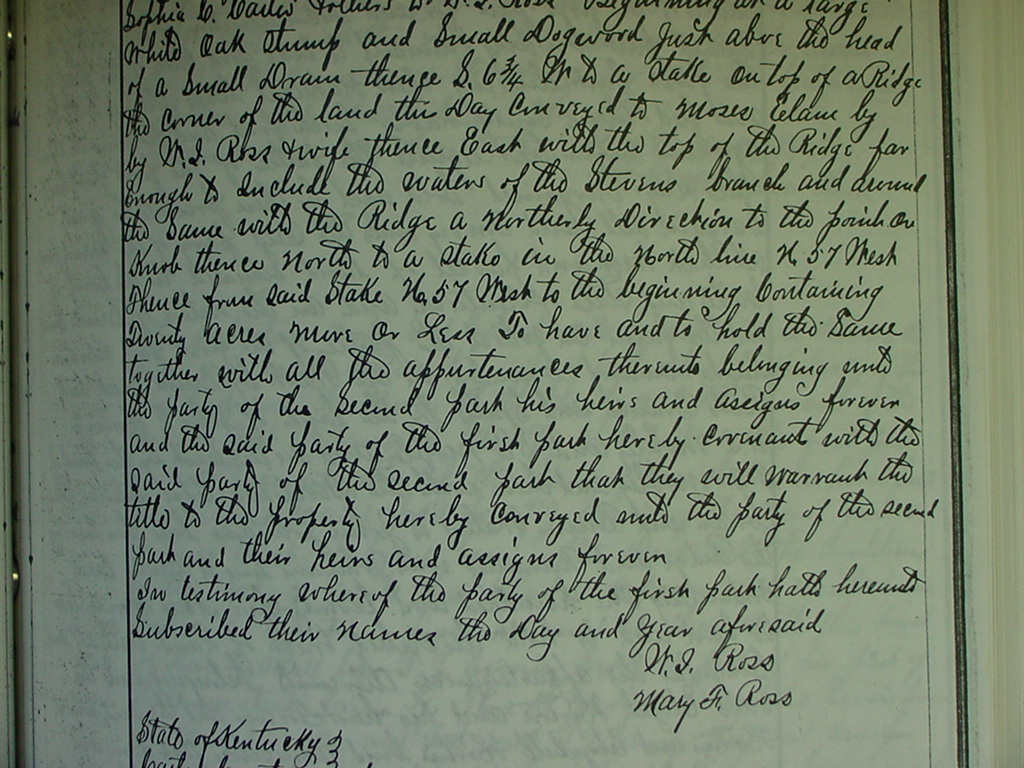 Sophia Ross Beginning at a large
White Oak Stump and Small Dogwood Just above the head
of a Small Drain thence S. 6¾ W to a Stake on top of a Ridge
the corner of the land this Day Conveyed to Moses Elam by
by W. I. Ross & wife thence East with the top of the Ridge far
Enough to Include the waters of the Stevens branch and around
the Same with the Ridge a Northerly Direction to the point or
Knob thence North to a Stake in the North line N. 57 West
Thence from said Stake N. 57 West to the beginning Containing
Twenty acres more or Less To have and to hold the Same
together with all the appurtenances thereunto belonging unto
the party of the Second part his heirs and assigns forever
and the said party of the first part hereby covenant with the
said party of the second part that they will warrant the
title to the property hereby conveyed unto the party of the second
part and their heirs and assigns forever
In testimony whereof the party of the first part hath hereunto
Subscribed their names the Day and Year aforesaid
W. I. Ross
Mary F. Ross
State of Kentucky